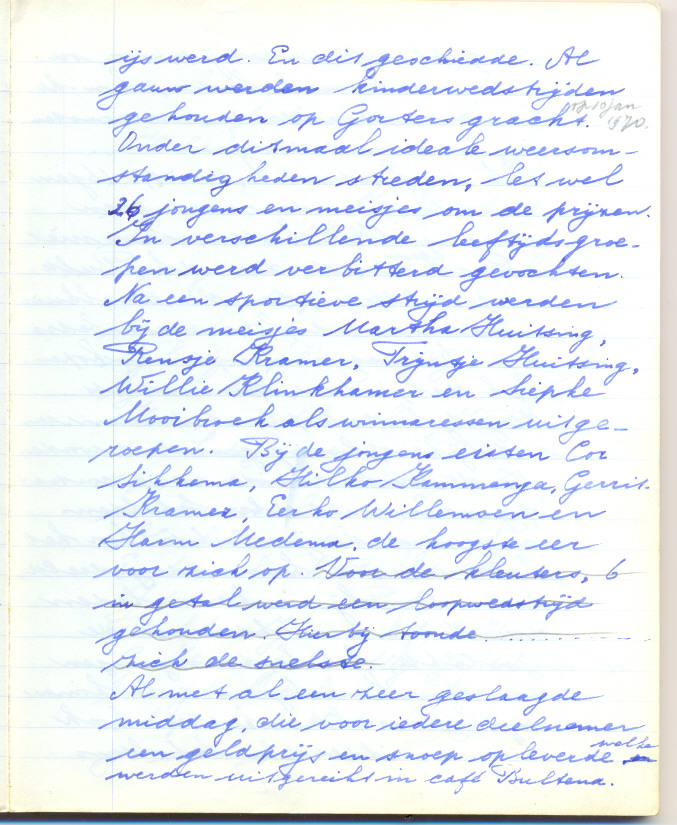 ijs werd. En dit geschiedde. Al
gauw werden kinderwedstrijden
gehouden op Gorters gracht.
op 10 jan
1970.
Onder ditmaal ideale weersom-
standigheden streden, let wel
26 jongens en meisjes om de prijzen.
In verschillende leeftijdsgroe-
pen werd verbitterd gevochten.
Na een sportieve strijd werden
bij de meisjes Martha Huitsing,
Rensje Kramer, Trijntje Huitsing,
Willie Klinkhamer en Siepke
Mooibroek als winnaressen uitge-
roepen. Bij de jongens eisten Cor
Sikkema, Hilko Kammenga, Gerrit
Kramer, Eerko Willemsen en
Harm Medema, de hoogste eer
voor zich op. Voor de kleuters, 6
in getal werd een loopwedstrijd
gehouden. Hierbij toonde ..........
zich de snelste.
Al met al een zeer geslaagde
middag, die voor iedere deelnemer
een geldprijs en snoep opleverde welke en
werden uitgereikt in café Bultena.